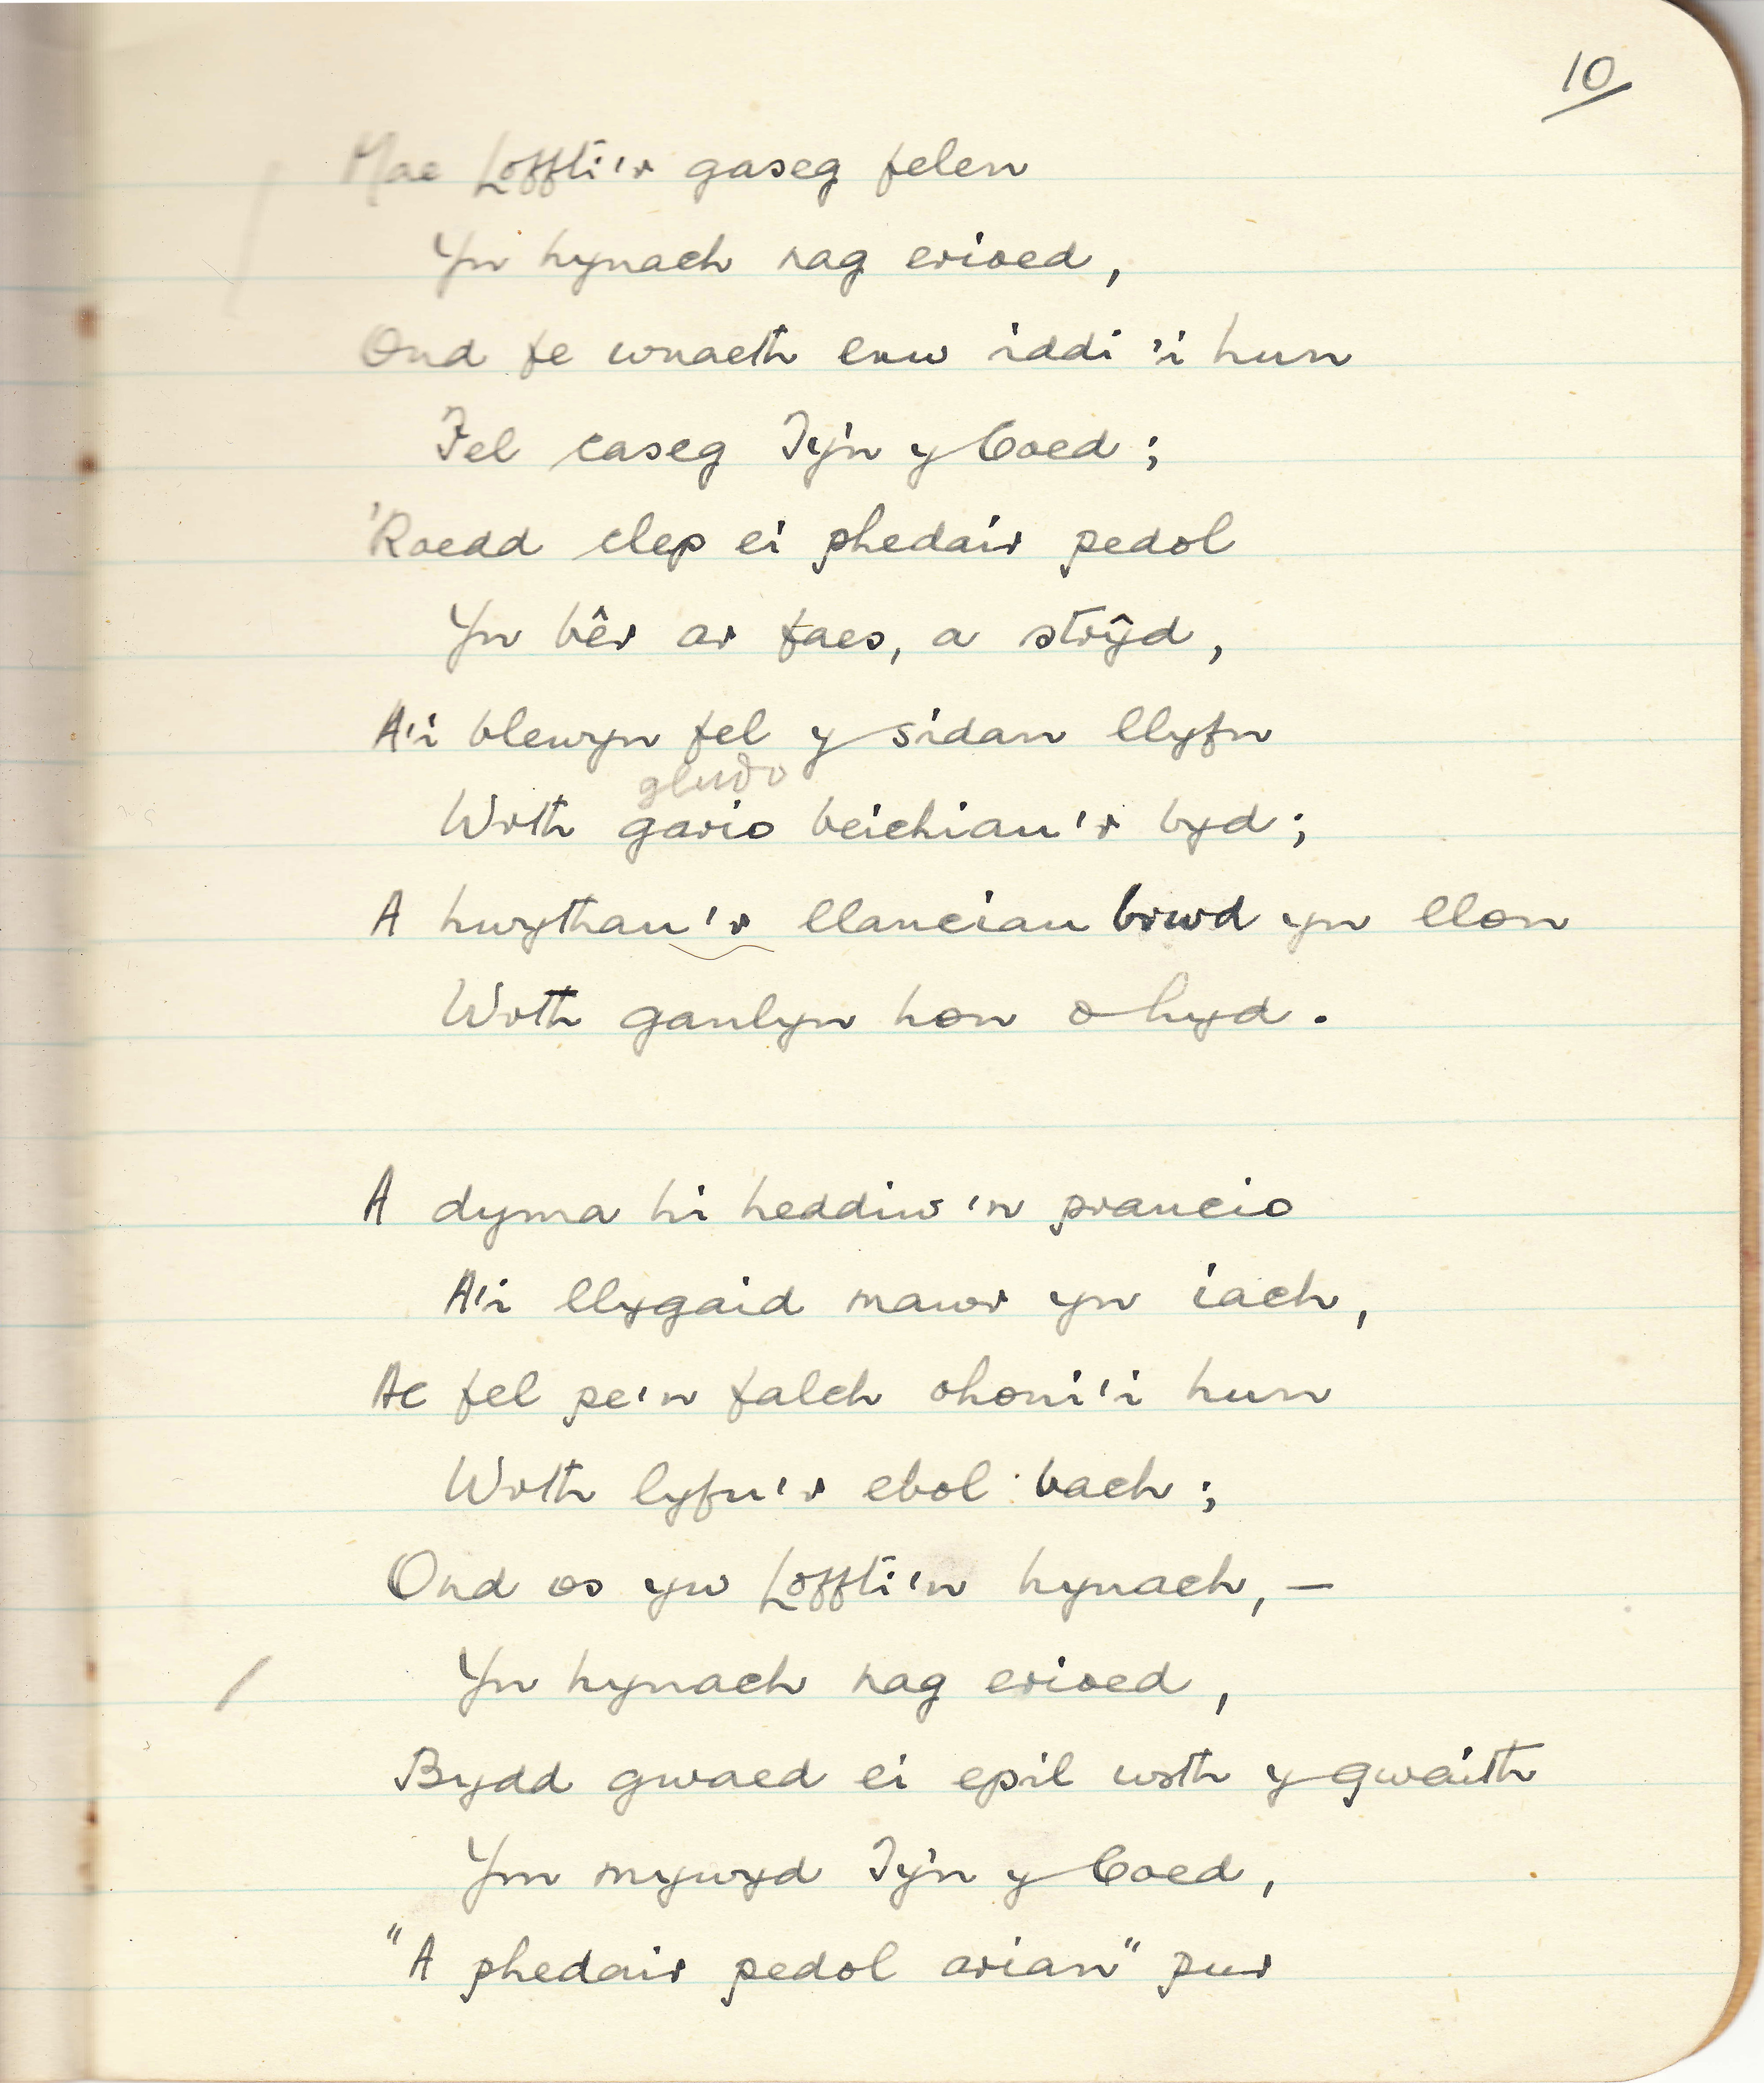 10
Mae Loffti'r gaseg felen
Yn hynach nag erioed,
Ond fe wnaeth enw iddi 'i hun
Fel caseg Ty'n y Coed;
'Roedd clep ei phedair pedol
Yn bêr ar faes, a strŷd,
A'i blewyn fel y sidan llyfn
gludo
Wrth gario beichiau'r byd;
A hwythau'r llanciau brwd yn llon
Wrth ganlyn hon o hyd.
A dyma hi heddiw'n prancio
A'i llygaid mawr yn iach,
Ac fel pe'n falch ohoni'i hun
Wrth lyfu'r ebol bach;
Ond os yw Loffti'n hynach, —
Yn hynach nag erioed,
Bydd gwaed ei epil wrth y gwaith
Ym mywyd Ty'n y Coed,
"A phedair pedol arian" pur